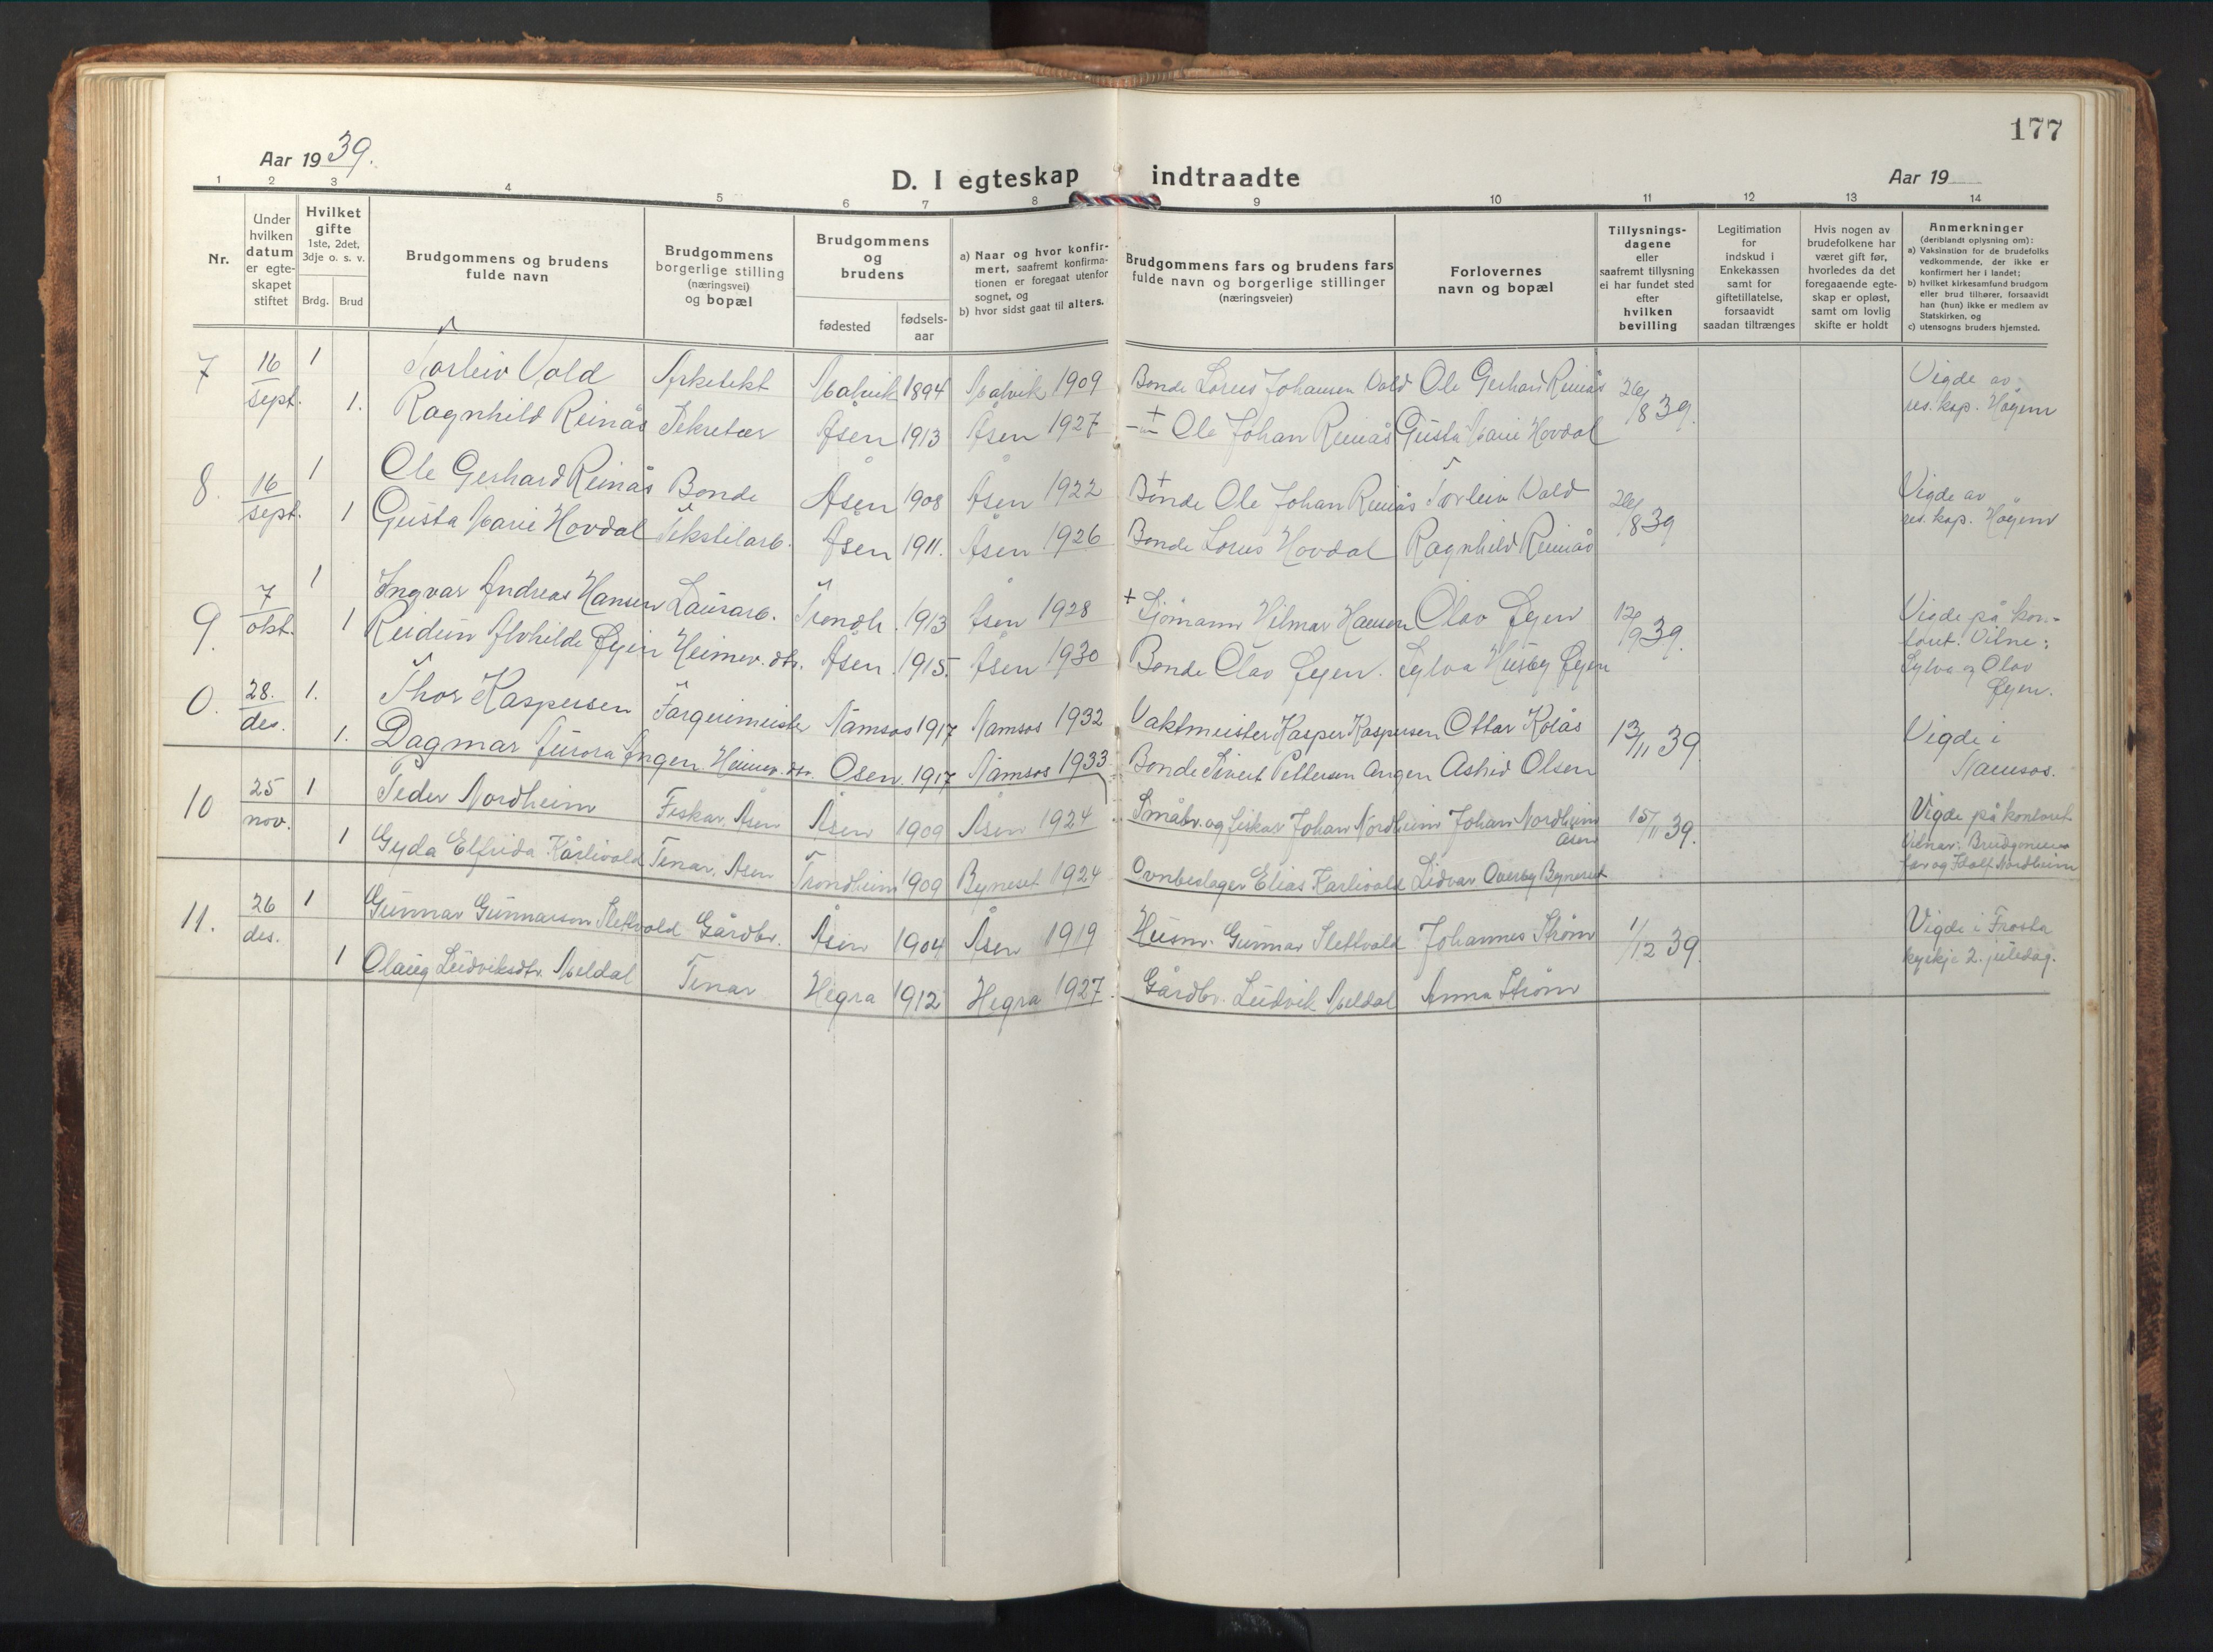 177
Aar 1939.
D. I egteskap indtraadte
Aar 19
1 2 3 4 5 6 7 8 9 10 11 12 13 14
Nr.
Under hvilken datum er egteskapet stiftet
Hvilket gifte 1ste, 2det, 3dje o. s. v.
Brdg. Brud
Brudgommens og brudens fulde navn
Brudgommens borgerlige stilling (næringsvei) og bopæl
Brudgommens og brudens
fødested
fødselsaar
a) Naar og hvor konfirmert, saafremt konfirmationen er foregaat utenfor sognet, og
b) hvor sidst gaat til alters.
Brudgommens fars og brudens fars fulde navn og borgerlige stillinger (næringsveier)
Forlovernes navn og bopæl
Tillysningsdagene eller saafremt tillysning ei har fundet sted efter hvilken bevilling
Legitimation for indskud i Enkekassen samt for giftetillatelse, forsaavidt saadan tiltrænges
Hvis nogen av brudefolkene har været gift før, hvorledes da det foregaaende egteskap er opløst, samt om lovlig skifte er holdt
Anmerkninger
(deriblandt oplysning om):
a) Vaksination for de brudefolks vedkommende, der ikke er konfirmert her i landet;
b) hvilket kirkesamfund brudgom eller brud tilhører, forsaavidt han (hun) ikke er medlem av Statskirken, og
c) utensogns bruders hjemsted.
7 16/sept. 1 Torleiv Vold Arkitekt Malvik 1894 Malvik 1909 Bonde Lorns Johansen Vold Ole Gerhard Reinås 26/8 39. Vigde av res. kap. Høgem
1. Ragnhild Reinås Sekretær Åsen 1913 Åsen 1927 + Ole Johan Reinås Gusta Marie Hovdal
8. 16/sept. 1 Ole Gerhard Reinås Bonde Åsen 1908 Åsen 1922 + Bonde Ole Johan Reinås Torleiv Vold 26/8 39 Vigde av res. kap. Høgem
1 Gusta Marie Hovdal Tekstilarb. Åsen 1911. Åsen 1926 Bonde Lorns Hovdal Ragnhild Reinås
9. 7/okt. 1 Ingvar Andreas Hansen Lausarb. Trondh. 1913 Åsen 1928 + Sjømann Hilmar Hansen Olav Øyen 12/9 39. Vigde på kontoret. Vitne: Sylva og Olav Øyen.
1 Reidun Alvhilde Øyen Heimev. dtr. Åsen 1915. Åsen 1930 Bonde Olav Øyen. Sylva Husby Øyen
0. 28./des. 1. Thor Kaspersen Targuimeister Namsos 1917 Namsos 1932 Vaktmeister Kasper Kaspersen Ottar Kolås 13/11 39. Vigde i Namsos.
1. Dagmar Aurora Angen Heimev. dtr. Osen 1917 Namsos 1933 Bonde Sivert Pettersen Angen Astrid Olsen
10 25/nov. 1 Peder Nordheim Fiskar, Åsen Åsen 1909 Åsen 1924 Småbr. og fiskar Johan Nordheim Johan Nordheim Åsen 15/11 39. Vigde på kontoret Vitner: Brudgomens far og Idolf Nordheim
1 Gyda Elfrida Karlivold Tenar, Åsen Trondheim 1909 Byneset 1924 Ovnbeslager Elias Karlivold Lidvar Overby Byneset
11. 26/des. 1 Gunnar Gunnarson Slettvold Gårdbr. Åsen 1904 Åsen 1919 Husm. Gunnar Slettvold Johannes Strøm 1/12 39. Vigde i Frosta kyrkje 2. juledag.
1 Olaug Ludviksdtr. Meldal Tenar Hegra 1912 Hegra 1927. Gårdbr. Ludvik Meldal Anna Strøm